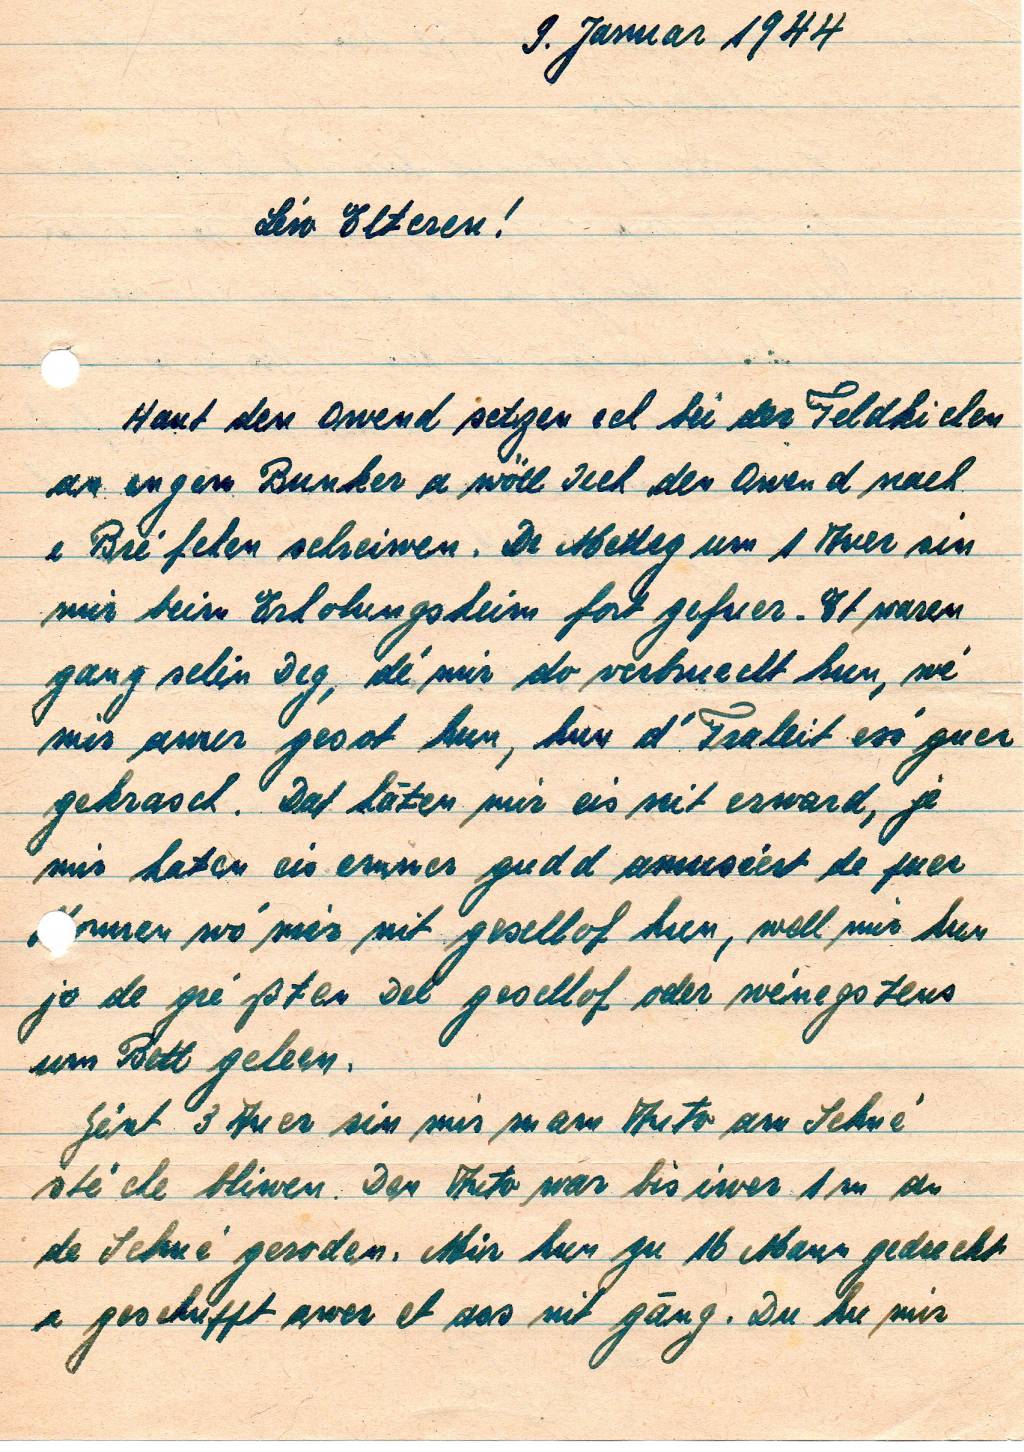 9. Januar 1944
Léiw Elteren!
Haut den Owend setzen ech bei der Feldkichen
an engem Bunker a wöll Iech den Owend nach
e Bréfchen schreiwen. De Metteg um 1 Auer sin
mir beim Erholungsheim fort gefuer. Et waren
gang schéin Deg, dé mir do verbruecht hun, wé
mir awer gesot hun, hun d' Fraleit esó guer
gekrasch. Dat häten mir eis nit erward, jo
mir haten eis ëmmer gudd amuséiert de puer
wó mir nit geschlof hun, well mir hun
jo de gréißten Del geschlof oder wénegstens
um Bett geleen.
Géint 3 Auer sin mir mam Auto am Schné
stéche bliwen. Den Auto war bis iwer 1 m an
de Schné geroden. Mir hun zu 16 Mann gedréckt
a geschufft awer et ass nit gäng. Du hu mir